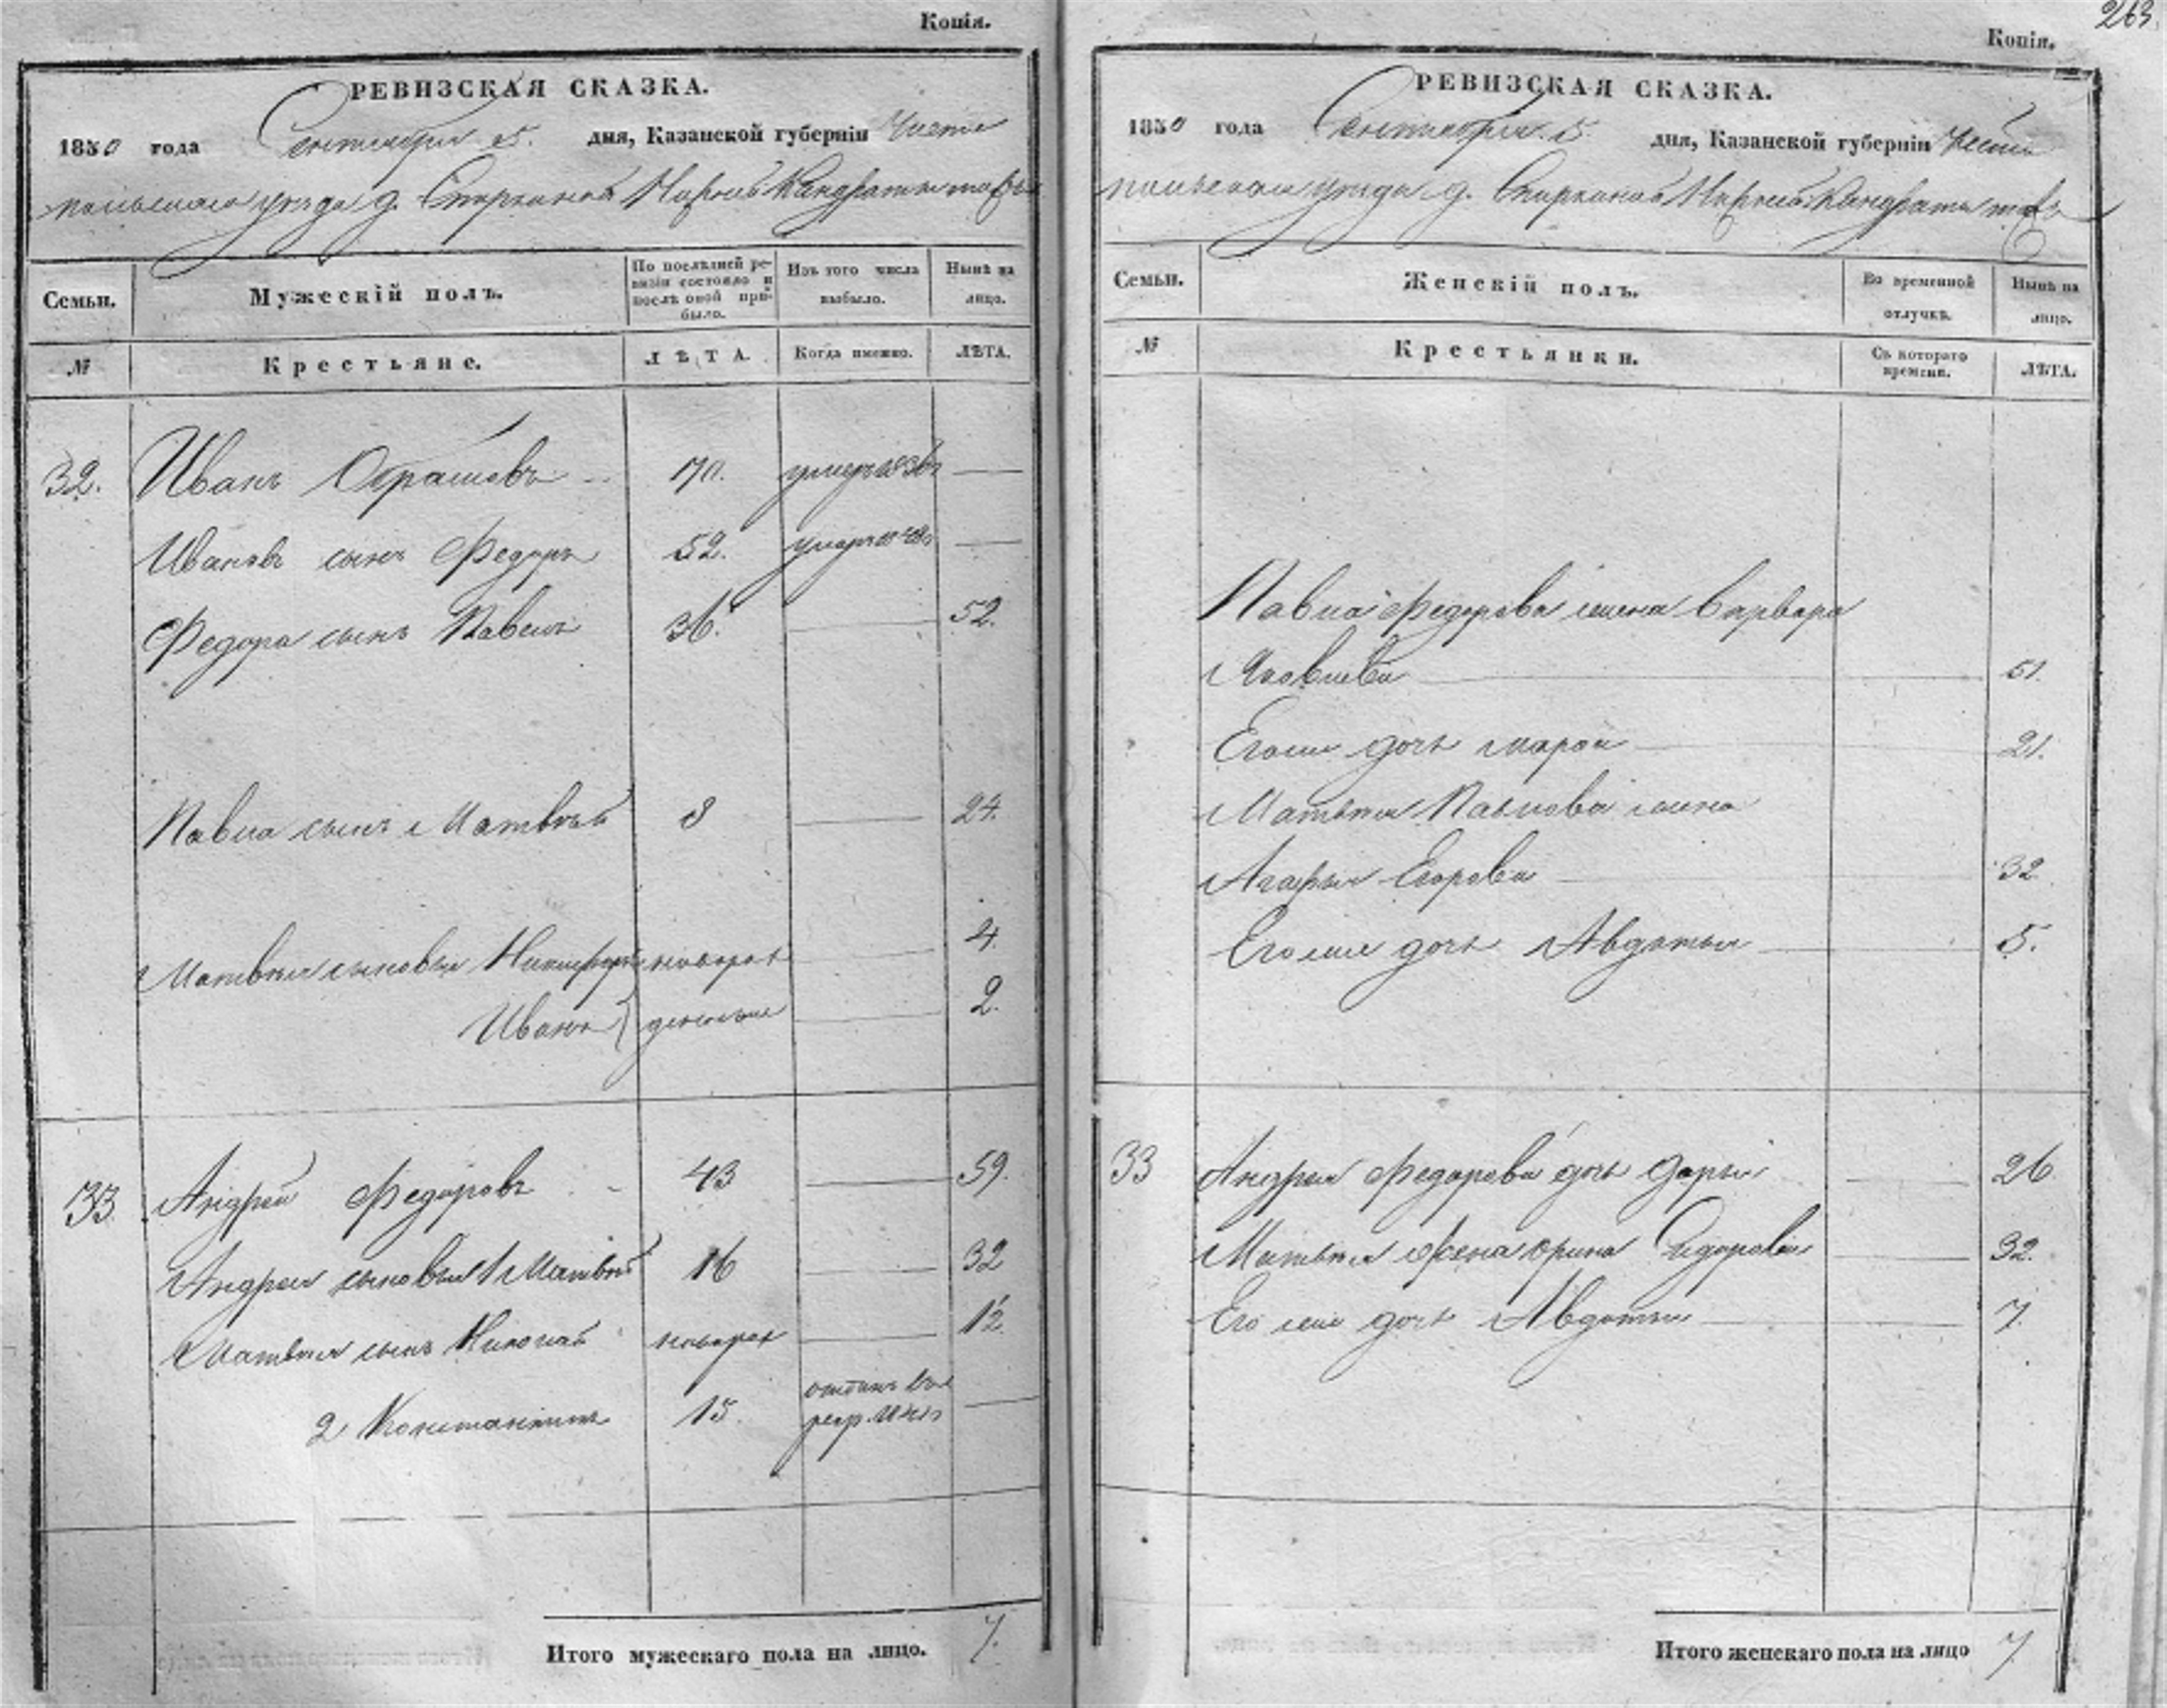 Копія.
РЕВИЗСКАЯ СКАЗКА.
1850 года Сентября 5. дня, Казанской губерніи Чисто
польскаго уезда д.
Семьи.
Мужескій полъ.
По послѣдней ре-
визіи состояло и
послѣ оной при-
было.
Изъ того числа
выбыло.
Нынѣ на
лицо.
№
Крестьяне.
ЛѢТА.
Когда именно.
ЛѢТА.
32. Иванъ 70. умеръ —
Ивановъ сынъ Федоръ 52. умеръ —
Федора сынъ Павелъ 36. — 52.
Павла сынъ Матвѣй 8 — 24.
Матвѣя сыновья новорож — 4.
Иванъ денные — 2.
33. Андрей Федоровъ 43 — 59.
Андрея сыновья 1 Матвѣй 16 — 32
Матвѣя сынъ Николай новорож — 12.
2 Константинъ 15. отданъ во
рекр. —
Итого мужескаго пола на лицо. 7.
263.
Копія.
РЕВИЗСКАЯ СКАЗКА.
1850 года Сентября 5. дня, Казанской губерніи Чисто
польскаго уезда д.
Семьи.
Женскій полъ.
Во временной
отлучкѣ.
Нынѣ на
лицо.
№
Крестьянки.
Съ котораго
времени.
ЛѢТА.
Павла Федорова жена Варвара
Яковлева — 51.
Его же дочь Марья — 21.
Матвѣя Павлова жена
Агафья Егорова — 32.
Его же дочь Авдотья — 5.
33 Андрея Федорова дочь Дарья — 26
Матвѣя жена Орина Сидорова — 32.
Его же дочь Авдотья — 7.
Итого женскаго пола на лицо 7